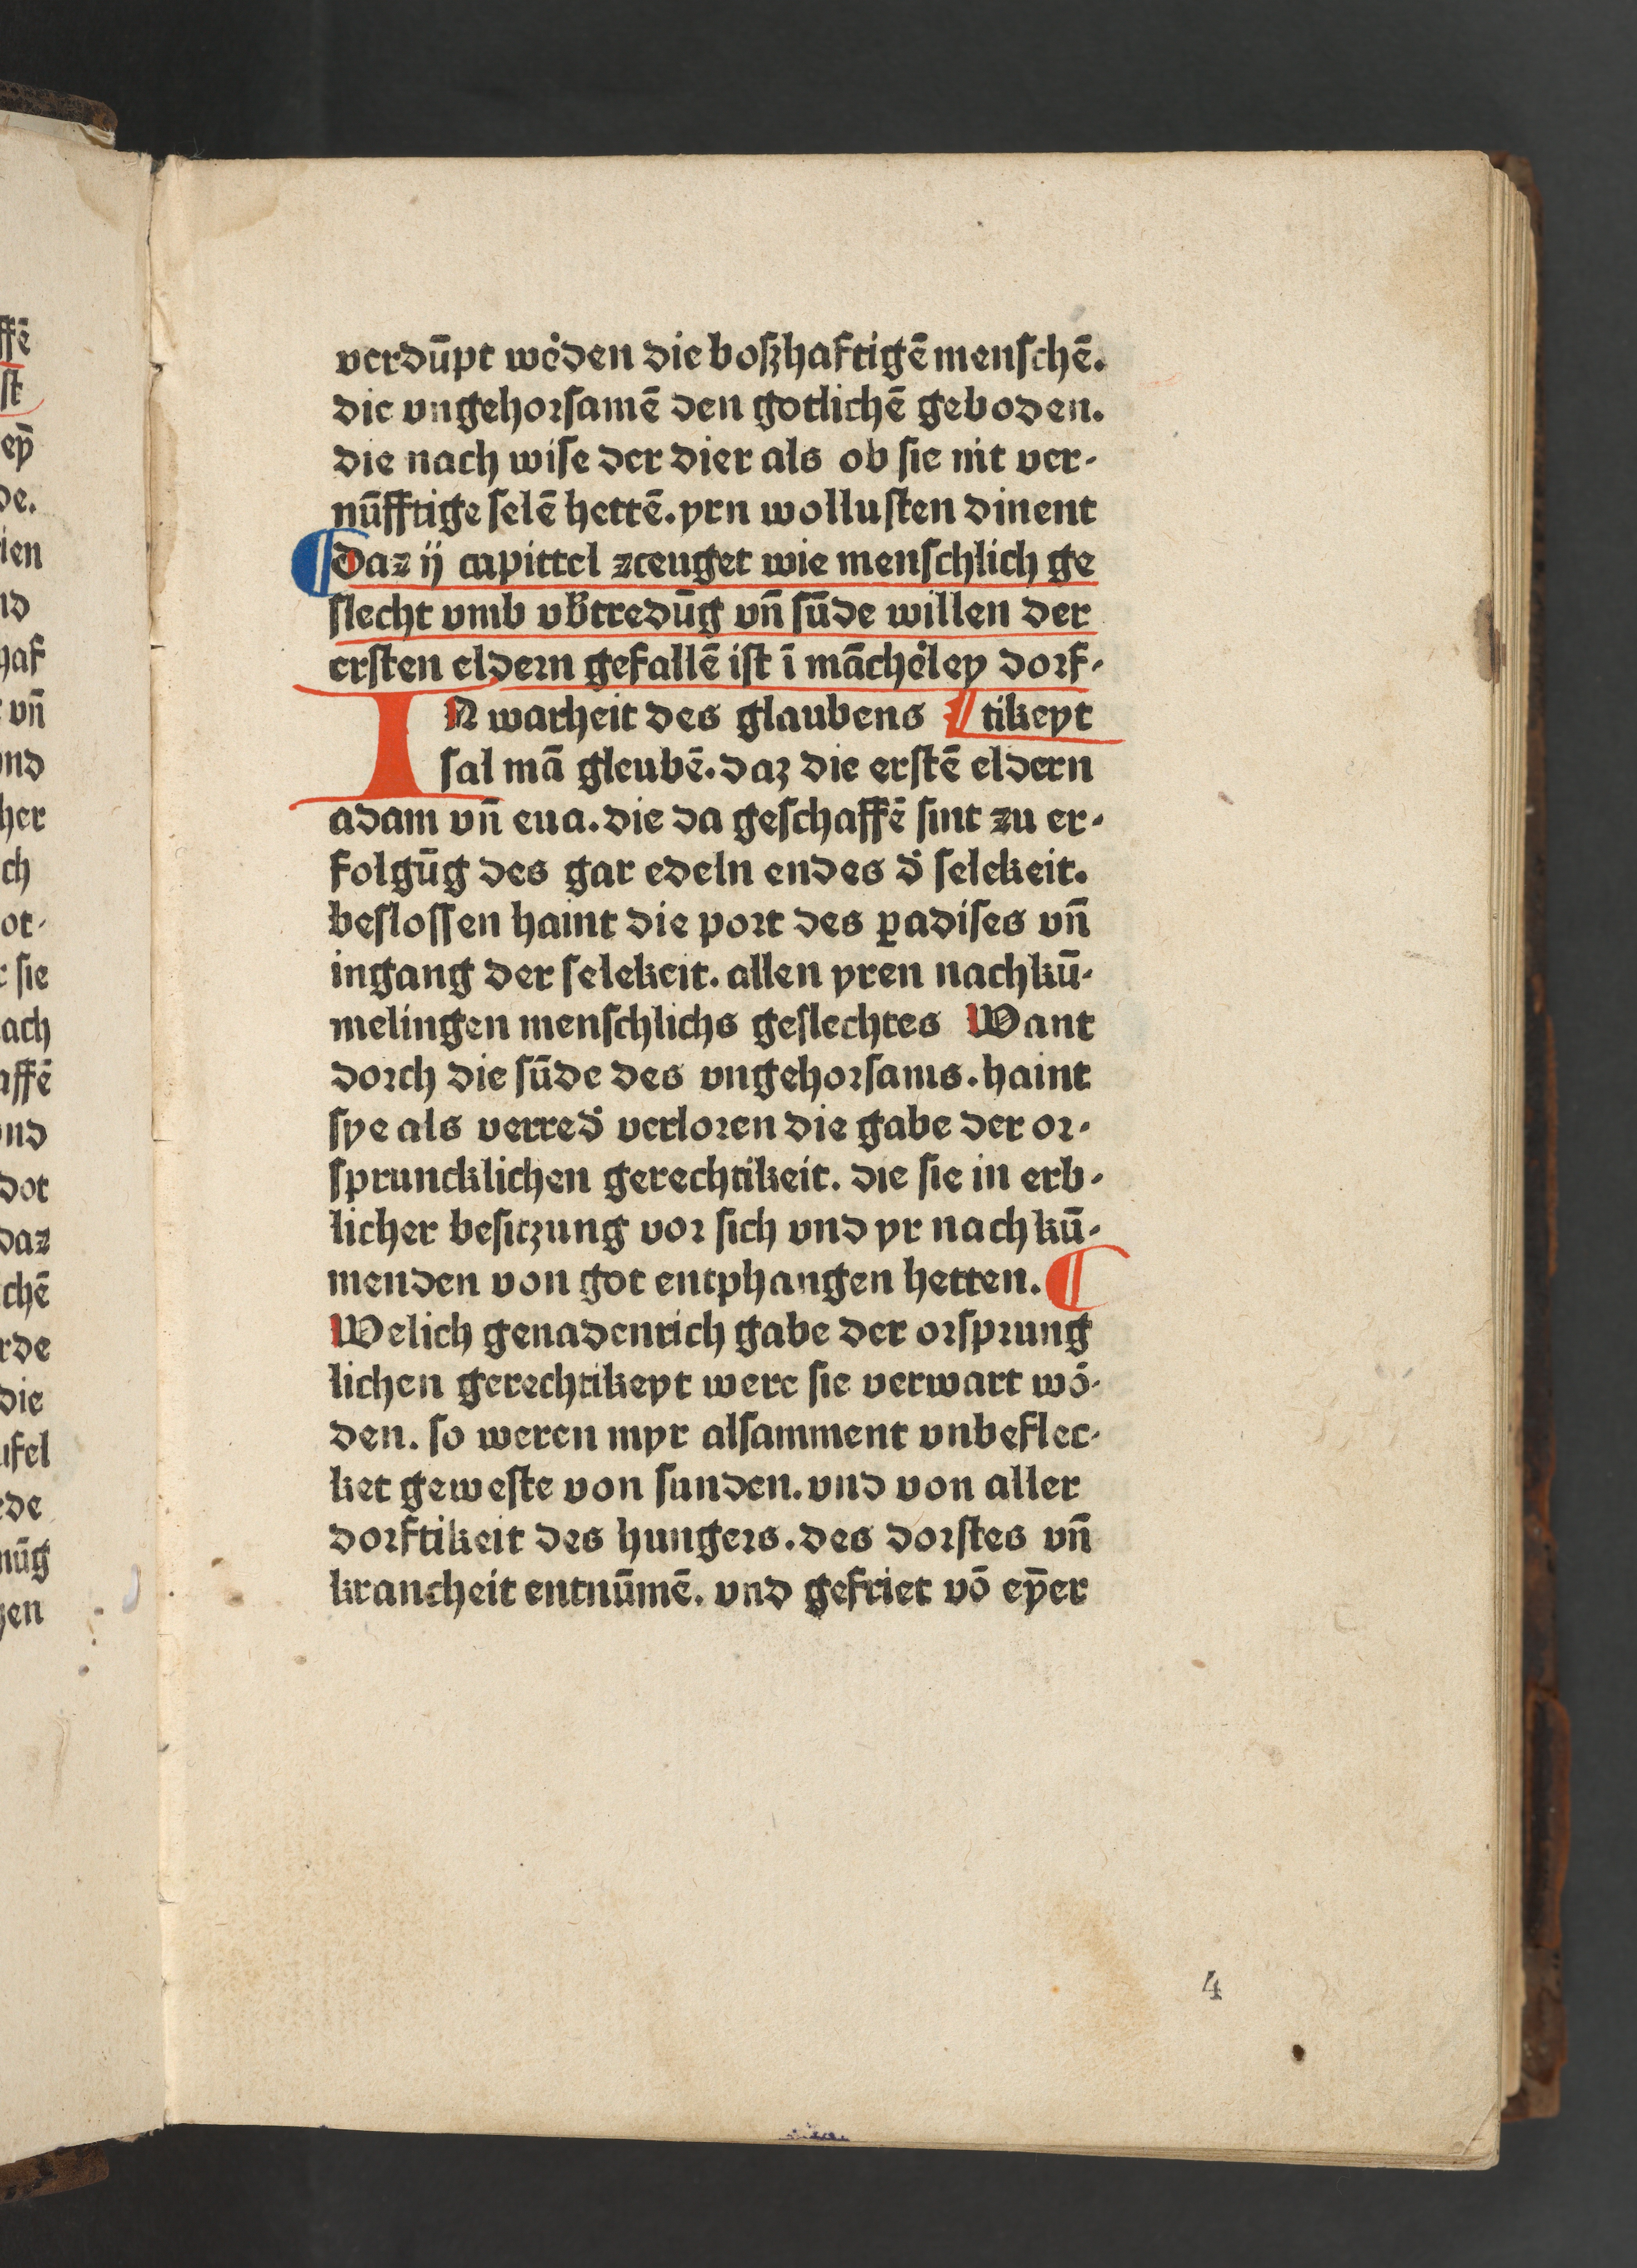 verdūpt we͛den die boßhaftigē menschē.
die vngehorsamē den gotlichē geboden.
die nach wise der dier als ob sie nit ver-
nūfftige selē hettē. yrn wollusten dinent
¶ daz ij capittel zceuget wie menschlich ge
slecht vmb vb͛tredūg vn̄ sūde willen der
ersten eldern gefallē ist ī māche͛ley dorf-
IN warheit des glaubens ¶ tikeyt
sal mā gleubē. daz die erstē eldern
adam vn̄ eua. die da geschaffē sint zu er-
folgūg des gar edeln endes d͛ selekeit.
beslossen haint die port des ꝑadises vn̄
ingang der selekeit. allen yren nachkū-
melingen menschlichs geslechtes Want
dorch die sūde des vngehorsams. haint
sye als verred͛ verloren die gabe der or-
spruncklichen gerechtikeit. die sie in erb-
licher besitzung vor sich vnd yr nachkū-
menden von got entphangen hetten. ¶
Welich genadenrich gabe der orsprung
lichen gerechtikeyt were sie verwart wō-
den. so weren myr alsamment vnbeflec-
ket geweste von sunden. vnd von aller
dorftikeit des hungers. des dorstes vn̄
krancheit entnūmē. vnd gefriet vō eyn̄er
4
ffē
st
eyn̄
de.
ien
nd
haf
vn̄
nd
her
ch
ot-
sie
ach
affē
nd
dot
daz
chē
rde
die
ufel
de
nūg
zen